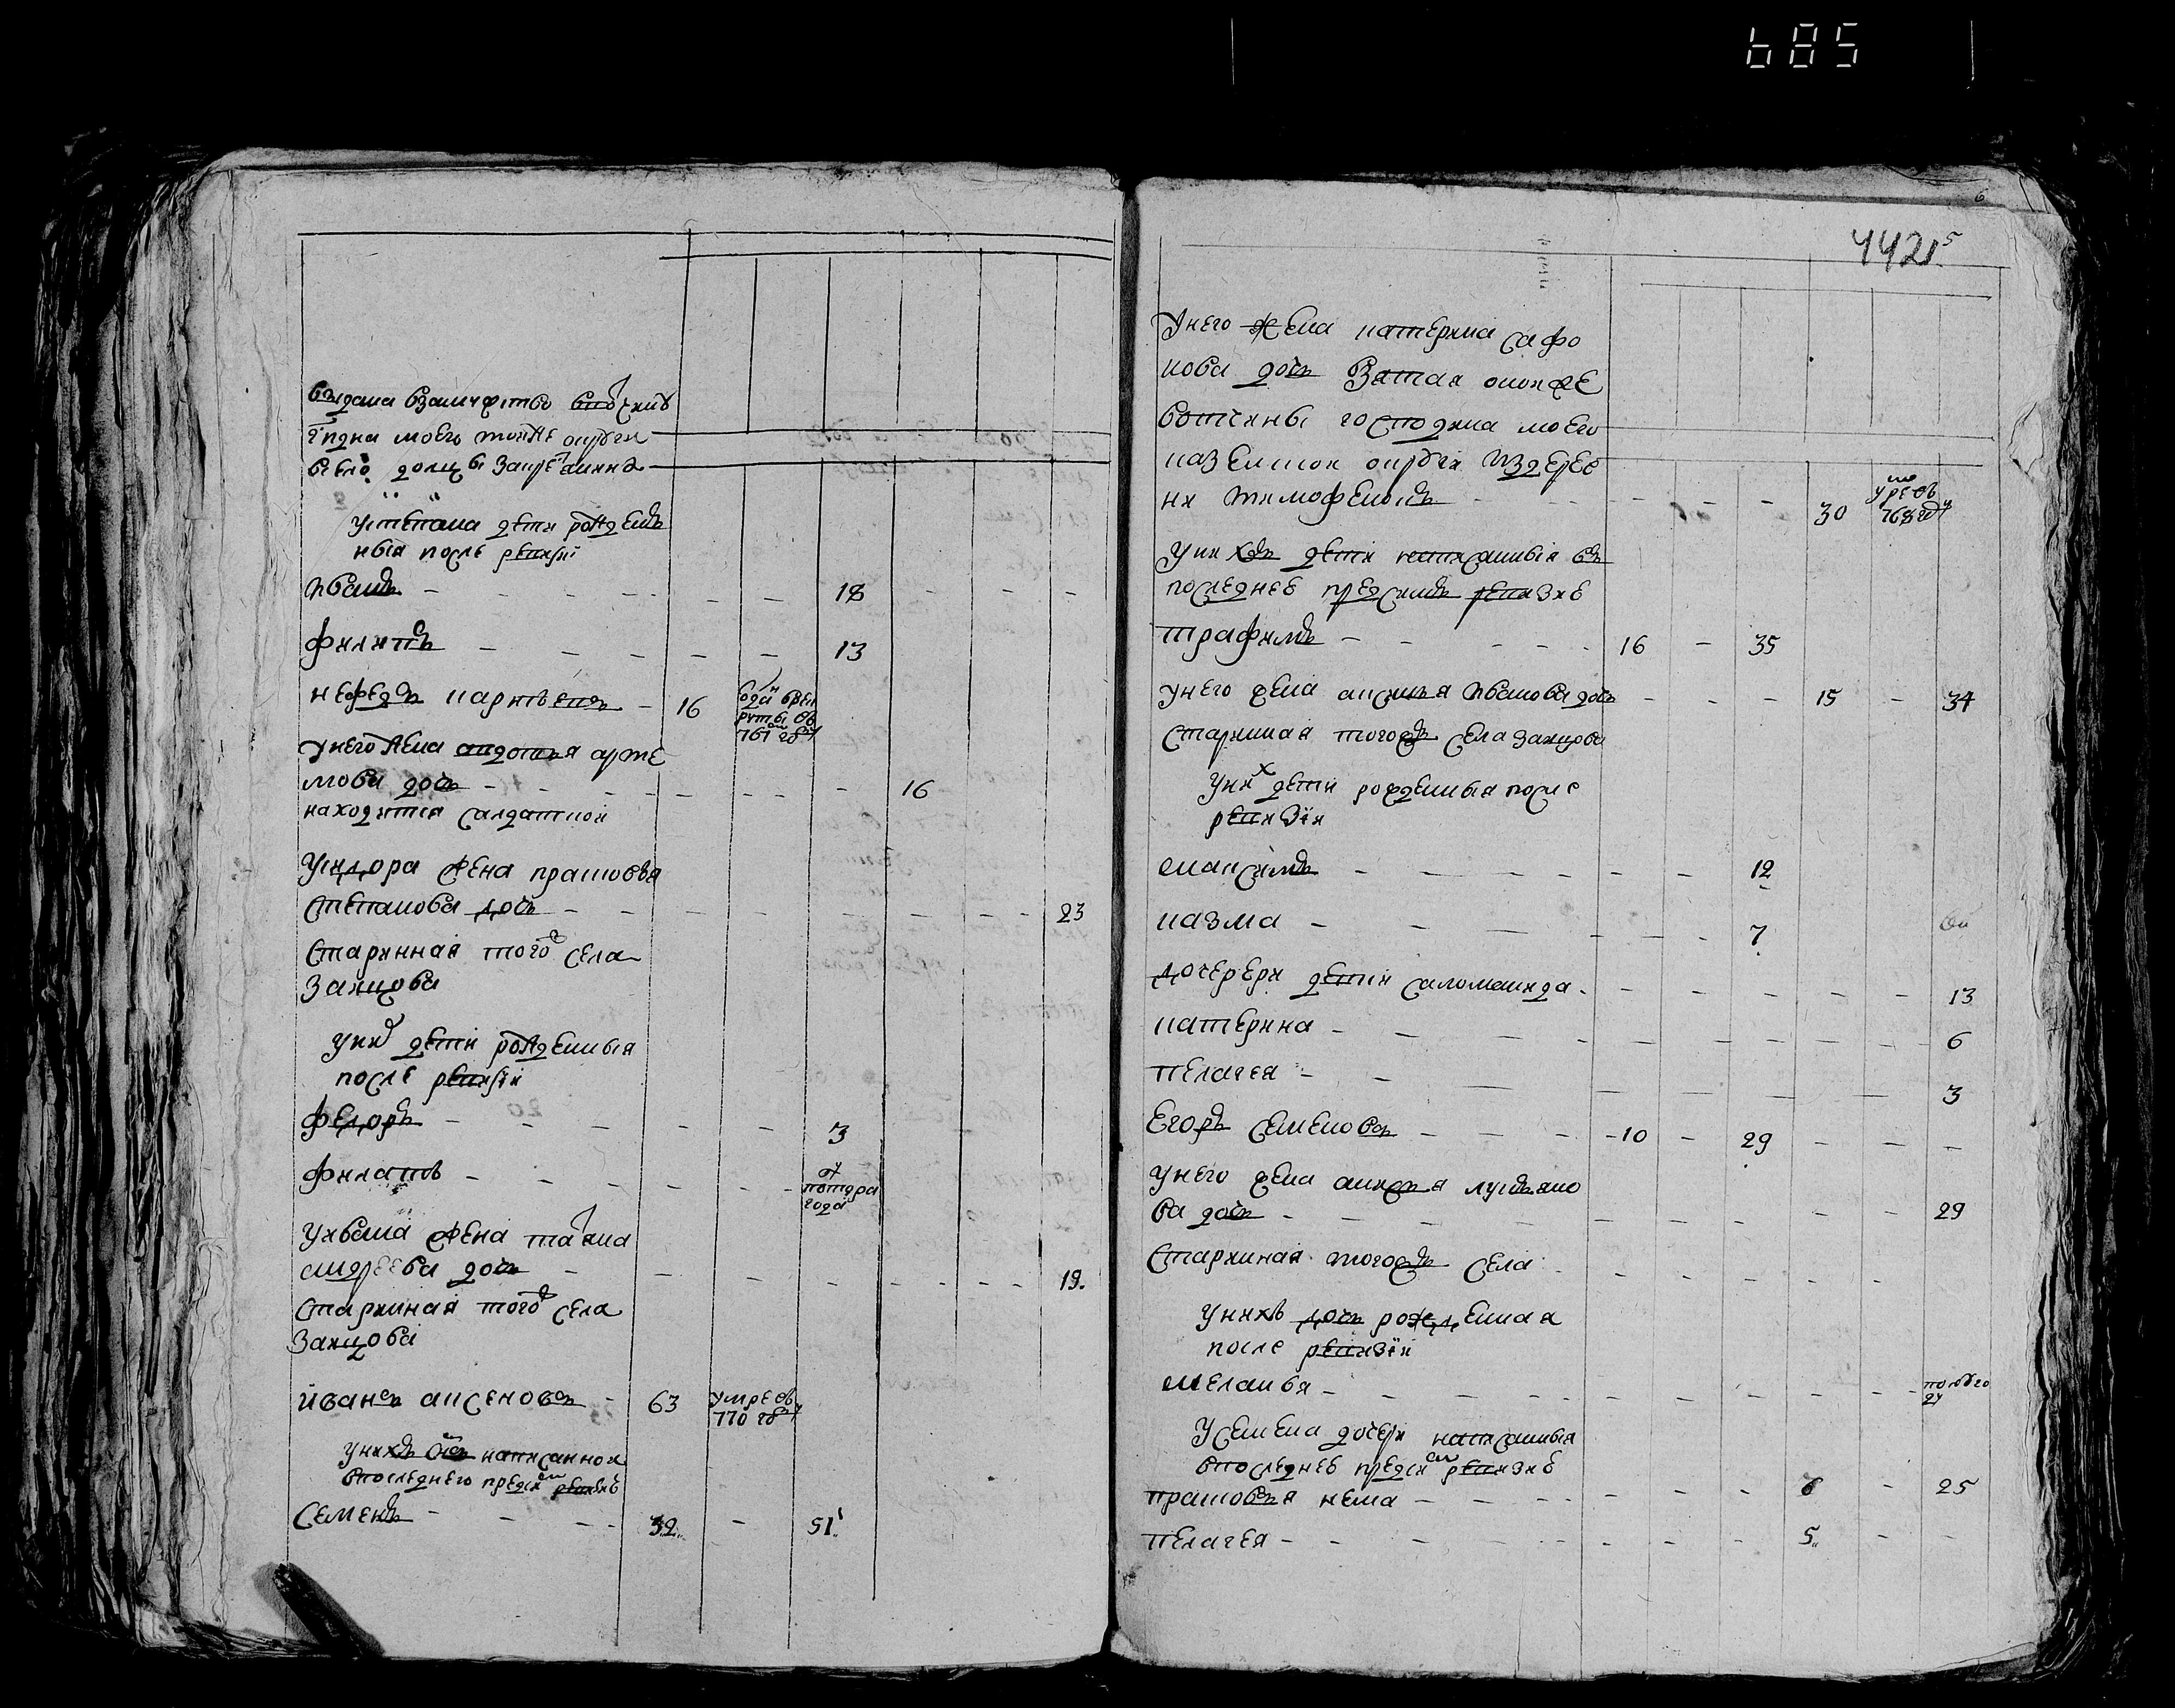 685
выдана взамужство
моего
устепана дети рожден
ныя после ревизiи
иванъ - - - - - 18 - - -
филипъ - - - - - 13
нефедъ карпѣевъ - 16 отданъ врек
руты въ
761 году
унего жена авдотья арте
мова дочь - - - - - - - 16
находитца салдаткой
уѳедора жена прасковья
степанова дочь - - - - - - - - 23
старинная того ж села
Заицова
уних дети рожденныя
после ревизiи
федоръ - - - - - 3
филатъ - - - - - -
полтора
года
уивана жена татьяна
андреева дочь - - - - - - - - 19.
старинная того ж села
Заицова
иванъ аксеновъ - 63 умре въ
770 году
унихъ сынъ написанной
впоследнею пред сим ревизиѣ
семенъ - - - - 32 - 51
4421 5
6
унего жена катерина сафо
нова дочь взятая оной же
вотчины господина моего
округи издерев
ни тимофеинъ - - - - - 30 умре въ
768 году
унихъ дети написанныя въ
последнеѣ предсимъ ревизиѣ
трафимъ - - - - - 16 - 35
унего жена аксинья иванова дочь - - - 15 - 34
старинная тогожъ села заицова
уних дети рожденныя после
ревизiи
максимъ - - - - - - - 12
казма - - - - - - 7
дочерери дети саломанида - - - - - - - 13
катерина - - - - - - - - - 6
пелагея - - - - - - - - 3
егоръ семеновъ - - - - 10 - 29 - - -
унего жена анисья лукьяно
ва дочь - - - - - - - - - 29
старинная тогожъ села - - - - - -
унихъ дочь рожденная
после ревизiи
меланья - - - - - - - - - - полуго
ду
усемена дочери написанныя
впоследнеѣ пред сим ревизиѣ
прасковья нема - - - - - - - 6 - 25
пелагея - - - - - - - 5 - -